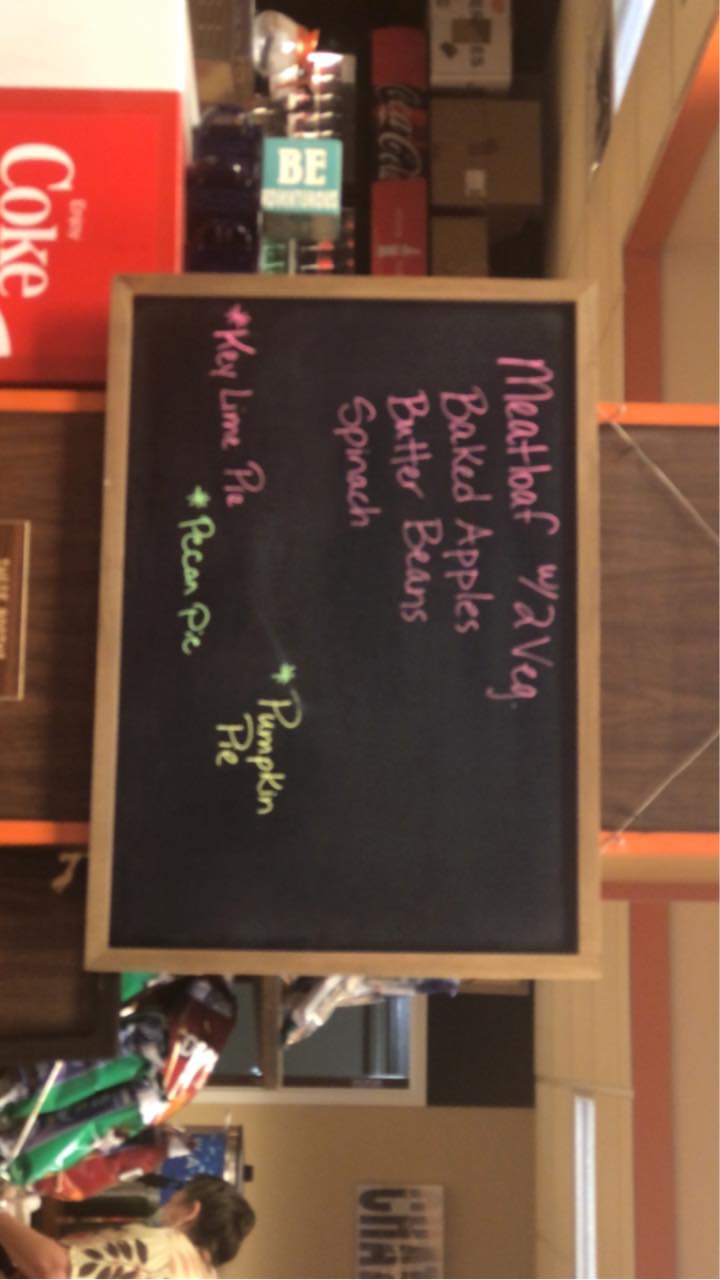 Meatloaf w/2 Veg.
Baked Apples
Butter Beans
Spinach
* Key Lime Pie
* Pecan Pie
* Pumpkin
Pie
BE
ADVENTUROUS
Coca-Cola
Enjoy
Coke
CHA